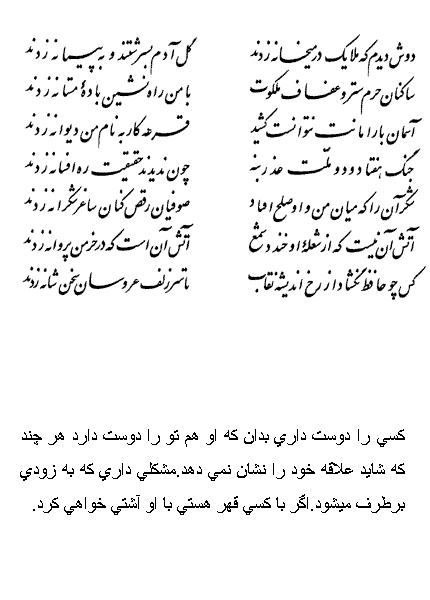 دوش دیدم که ملایک در میخانه زدند گل آدم بسرشتند و به پیمانه زدند
ساکنان حرم ستر و عفاف ملکوت با من راه نشین بادهٔ مستانه زدند
آسمان بار امانت نتوانست کشید قرعه کار به نام من دیوانه زدند
جنگ هفتاد و دو ملت همه عذر بنه چون ندیدند حقیقت ره افسانه زدند
شکر آن را که میان من و او صلح افتاد صوفیان رقص کنان ساغر شکرانه زدند
آتش آن نیست که از شعلهٔ او خندد شمع آتش آن است که در خرمن پروانه زدند
کس چو حافظ نگشاد از رخ اندیشه نقاب تا سر زلف عروسان سخن شانه زدند
کسي را دوست داري بدان که او هم تو را دوست دارد هر چند
که شايد علاقه خود را نشان نمي دهد.مشکلي داري که به زودي
برطرف ميشود.اگر با کسي قهر هستي با او آشتي خواهي کرد.